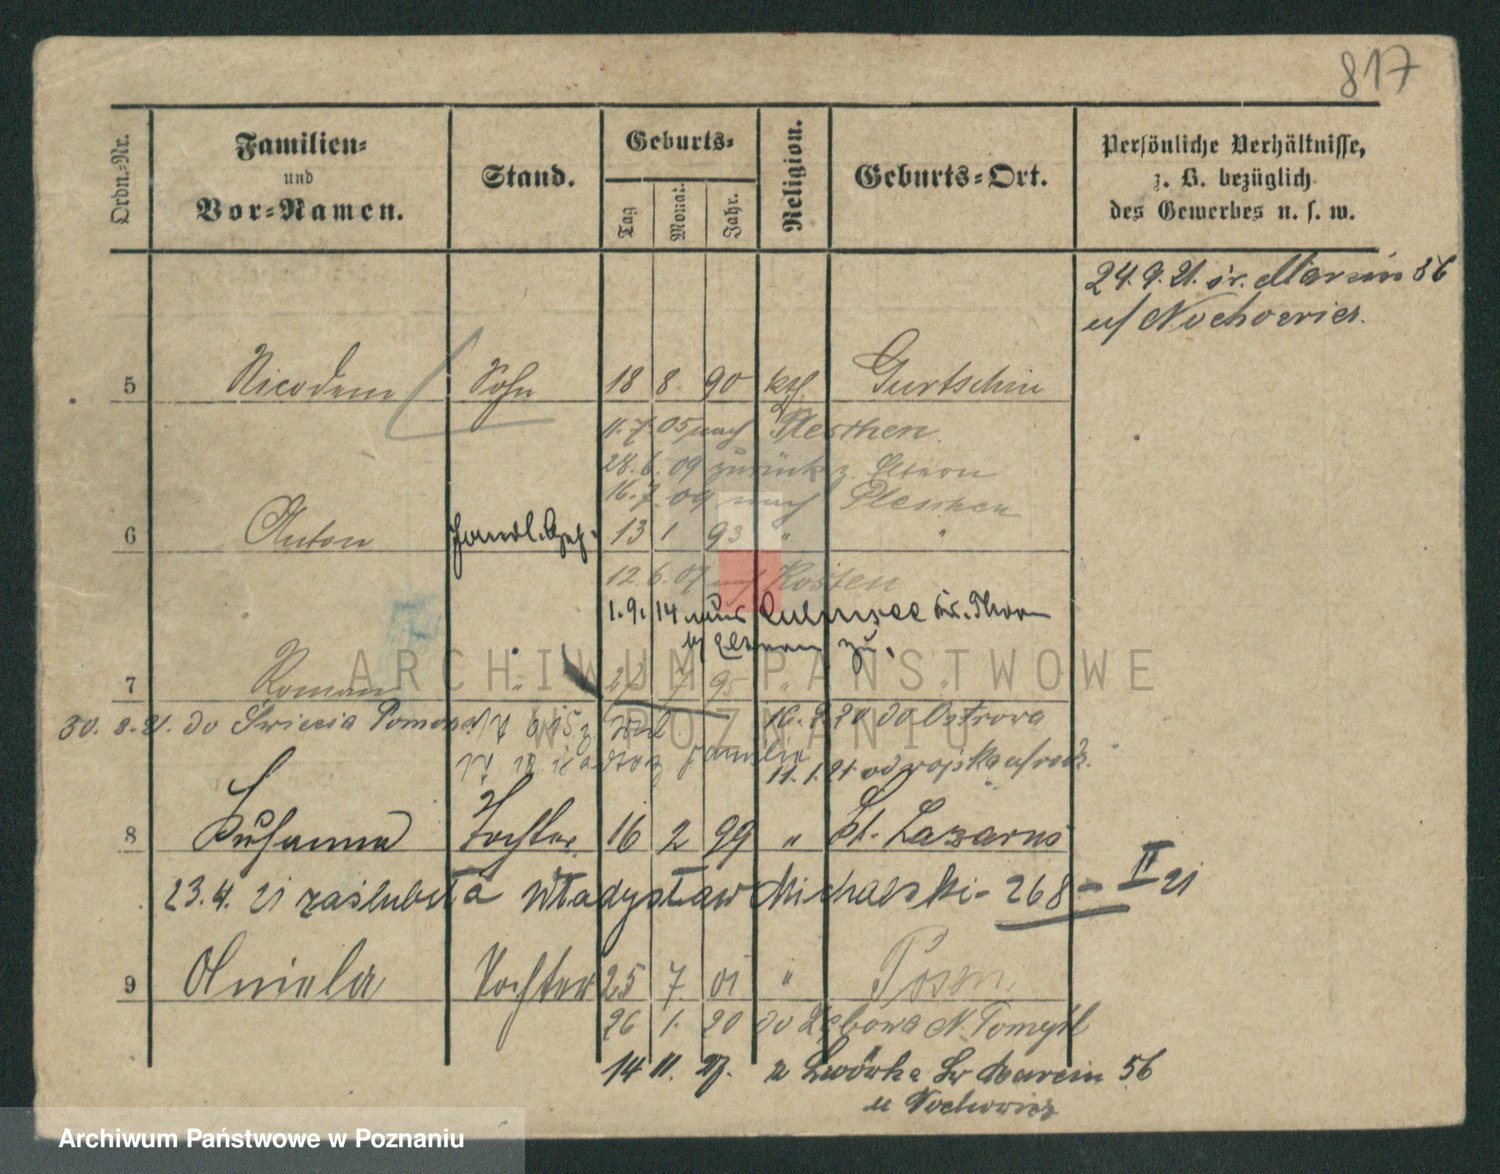 817
Ordn.-Nr.
Familien-
und
Vor-Namen.
Stand.
Geburts-
Tag
Monat.
Jahr.
Religion.
Geburts-Ort.
Persönliche Verhältnisse,
z. B. bezüglich
des Gewerbes u. s. w.
24. 9. 21. św. Marcin 56
u/ Nochowicz.
5 Nicodem Sohn 18 8. 90 kth. Gurtschin
11. 7. 05 nach Pleschen.
28. 6. 09 zurück z. Eltern
16. 7. 09 nach Pleschen
6 Anton Handl. Geh. 13 1 93 " "
12. 6. 07 nach Kosten
1. 9. 14 aus Culmsee Kr. Thorn
b/ Eltern zu.
7 Roman " 7 95 " "
30. 8. 21. do Świecia Pomorze
16. 2. 20 do Ostrowa
11. 1. 21 od wojska
8 Susanna Tochter 16 2 99 " St. Lazarus
23. 4. 21 zaślubiła Władysław Michalski - 268 - II 21
9 Aniela Tochter 25 7. 01 " Posen.
26 1. 20 do N. Tomyśl
14 11. 27. z Lwówka Św Marcin 56
u Nochowicz
ARCHIWUM PAŃSTWOWE
W POZNANIU
Archiwum Państwowe w Poznaniu